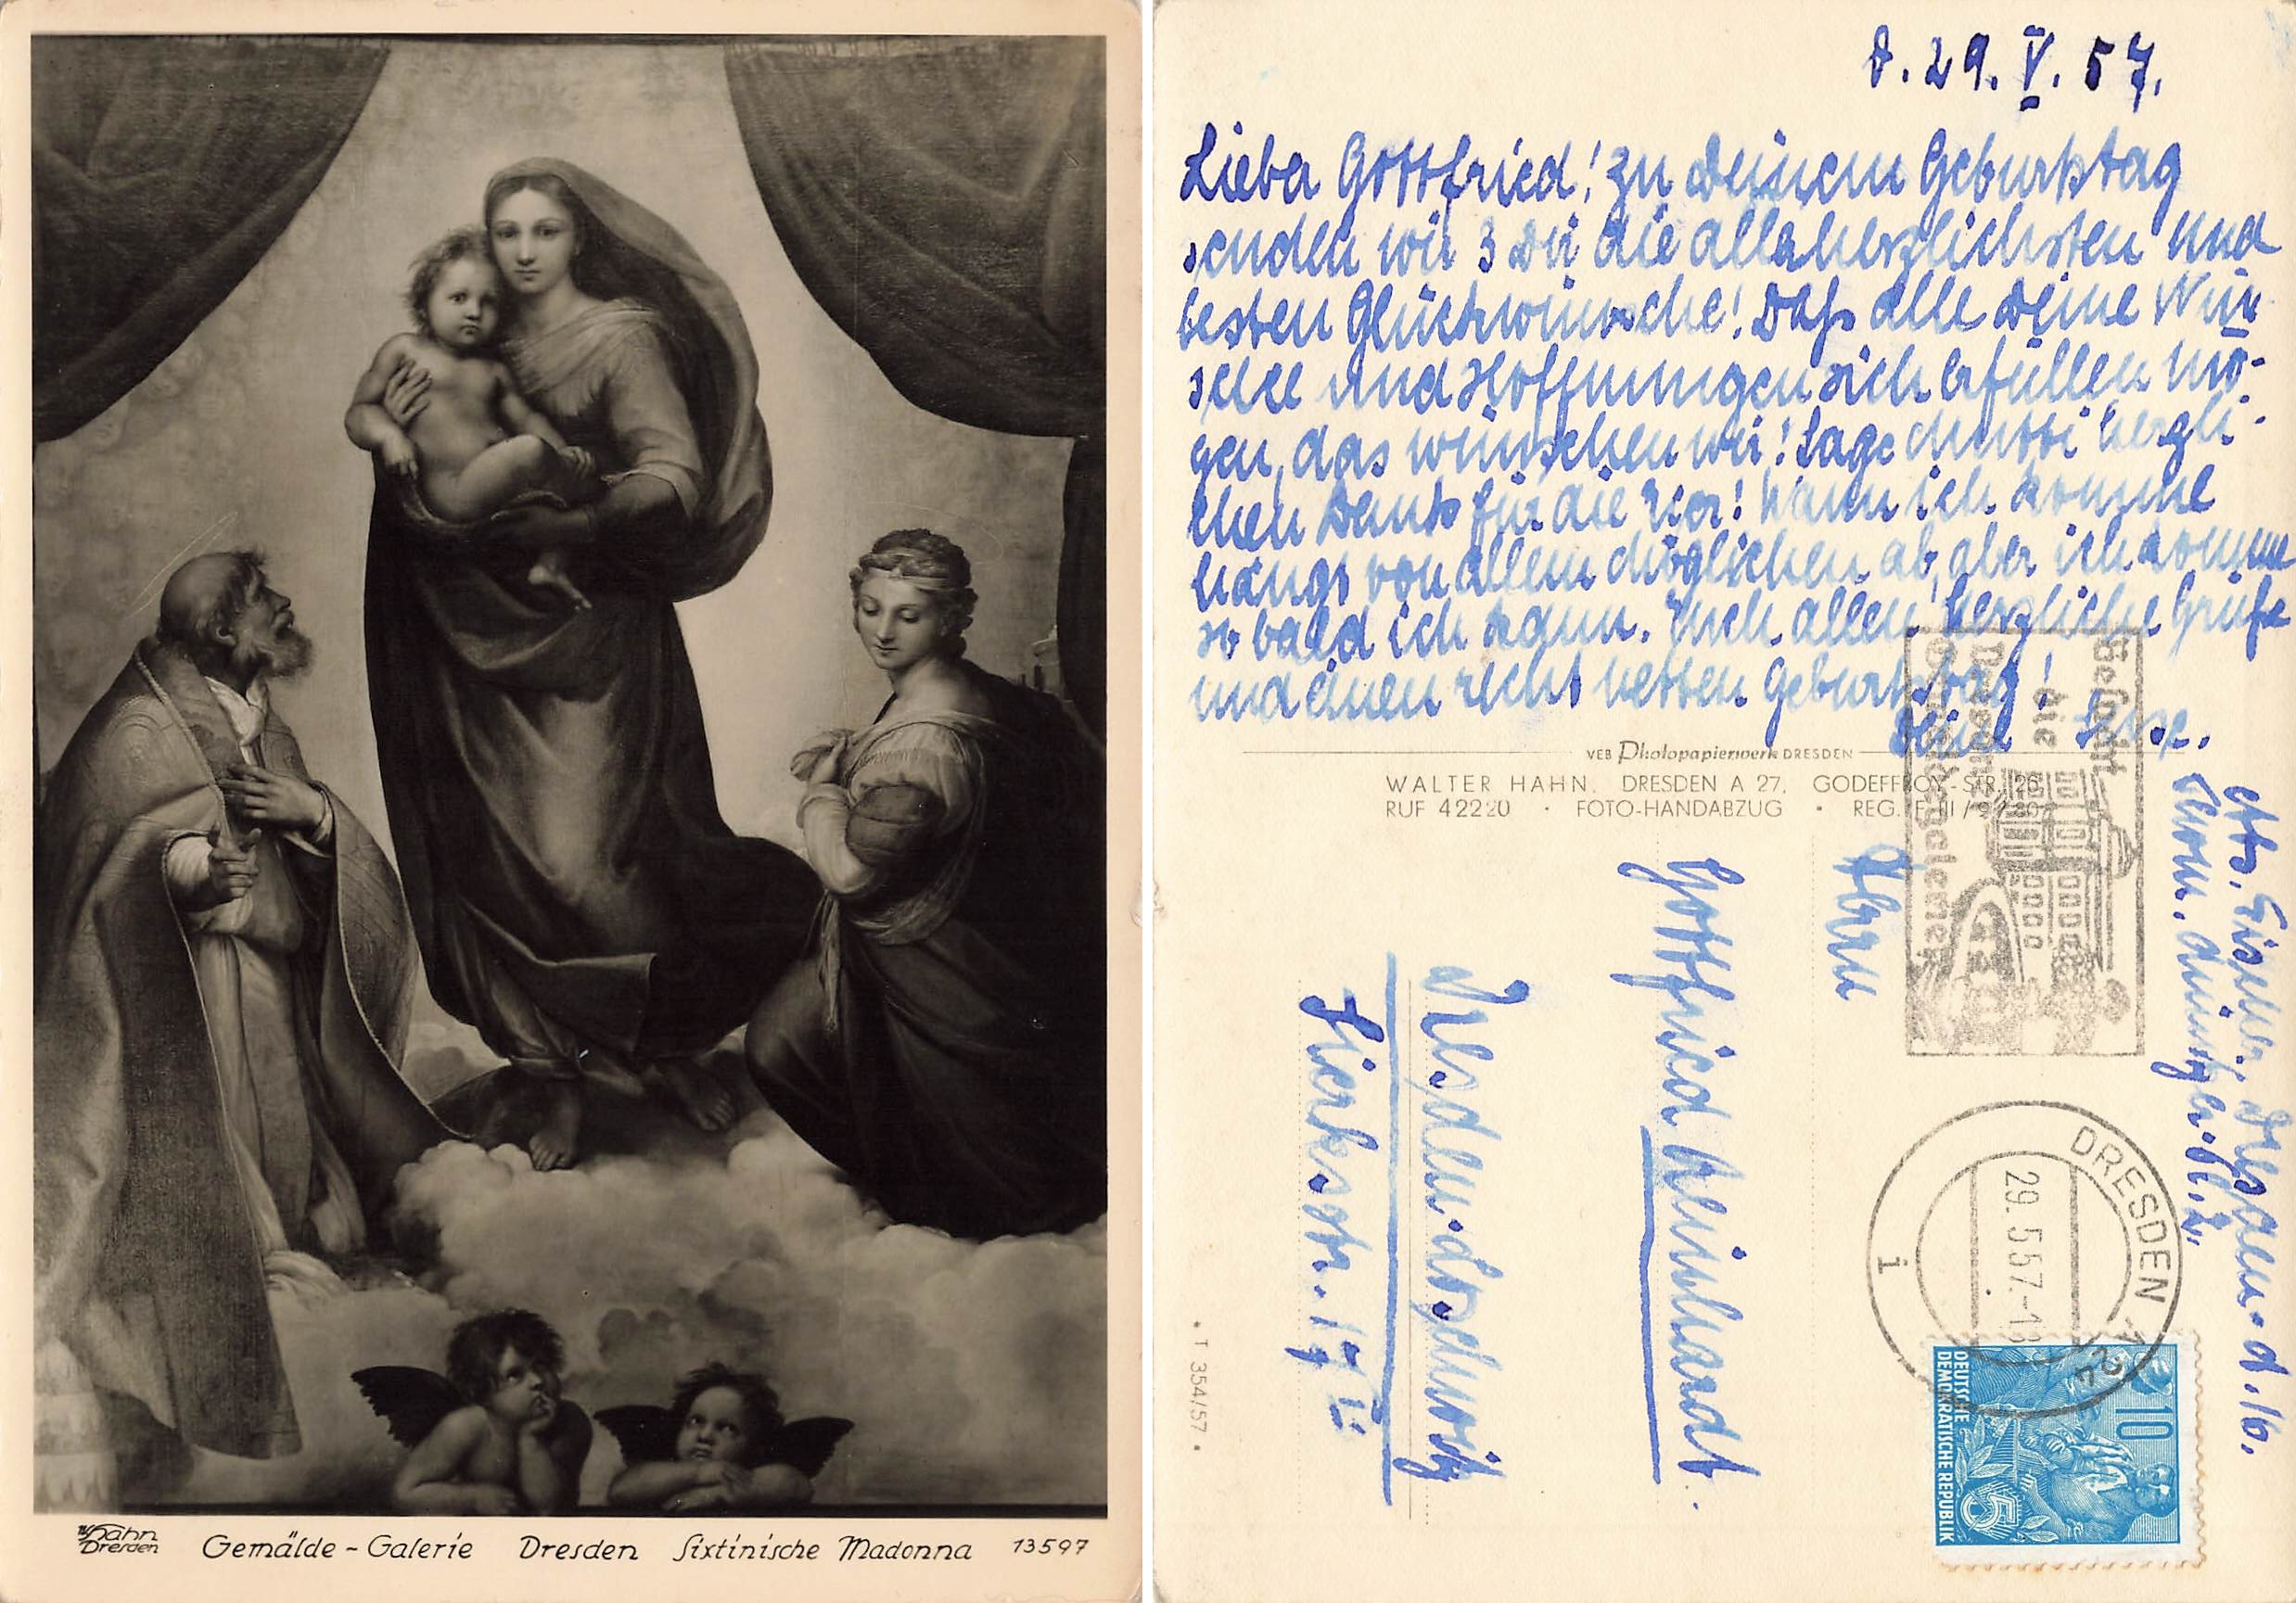 W. Hahn
Dresden
Gemälde-Galerie Dresden Sixtinische Madonna 13597
D. 29. V. 57.
Lieber Gottfried! Zu Deinem Geburtstag
senden wir 3 Dir die allerherzlichsten und
besten Glückwünsche! Daß alle Deine Wün-
sche und Hoffnungen sich erfüllen mö-
gen, das wünschen wir! Sage Mutti herzli-
chen Dank für die Eier! Wann ich komme
hängt von allem Möglichen ab, aber ich komme
so bald ich kann. Euch allen herzliche Grüße
und einen recht netten Geburtstag!
Deine
VEB Photopapierwerk DRESDEN
WALTER HAHN. DRESDEN A 27, GODEFFROY-STR. 26
RUF 42220 • FOTO-HANDABZUG • REG.
Abs. Fischer, Dresden A. 16.
Besucht
die
Dresdner
Gemäldegalerien
DRESDEN
29.5.57.-18
i
10
DEUTSCHE
DEMOKRATISCHE REPUBLIK
Herrn
Gottfried Reinhardt.
Dresden-Loschwitz
• T 354/57 •